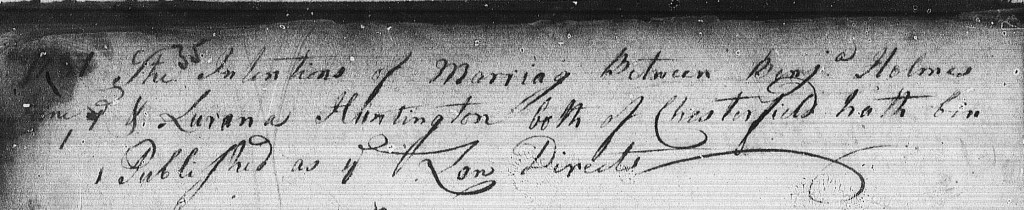 The 35 Intentions of Marriag Between Benja Holmes
& Lurana Huntington both of Chesterfield hath bin
Published as ye Law Directs